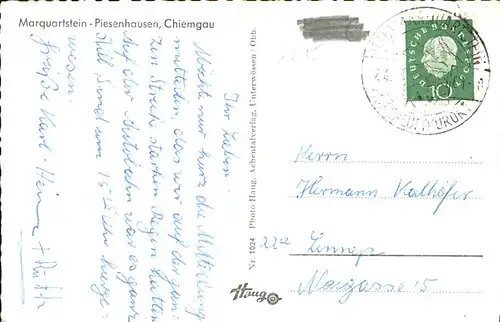 Marquartstein - Piesenhausen, Chiemgau
Ihr Lieben!
Möchte nur kurz die Mitteilung
mitteilen, das wir auf der gan-
zen Streck starken Regen hatten
Auf der Autobahn war es ganz
Still sind um 15 Uhr hier ge-
wesen.
Grüße Karl-Heinz + Ruth
Nr. 1024 Photo Haug, Achentalverlag, Unterwössen / Obb.
Haug
DEUTSCHE BUNDESPOST
10
Herrn
Hermann Kalhöfer
22a
Nr 15